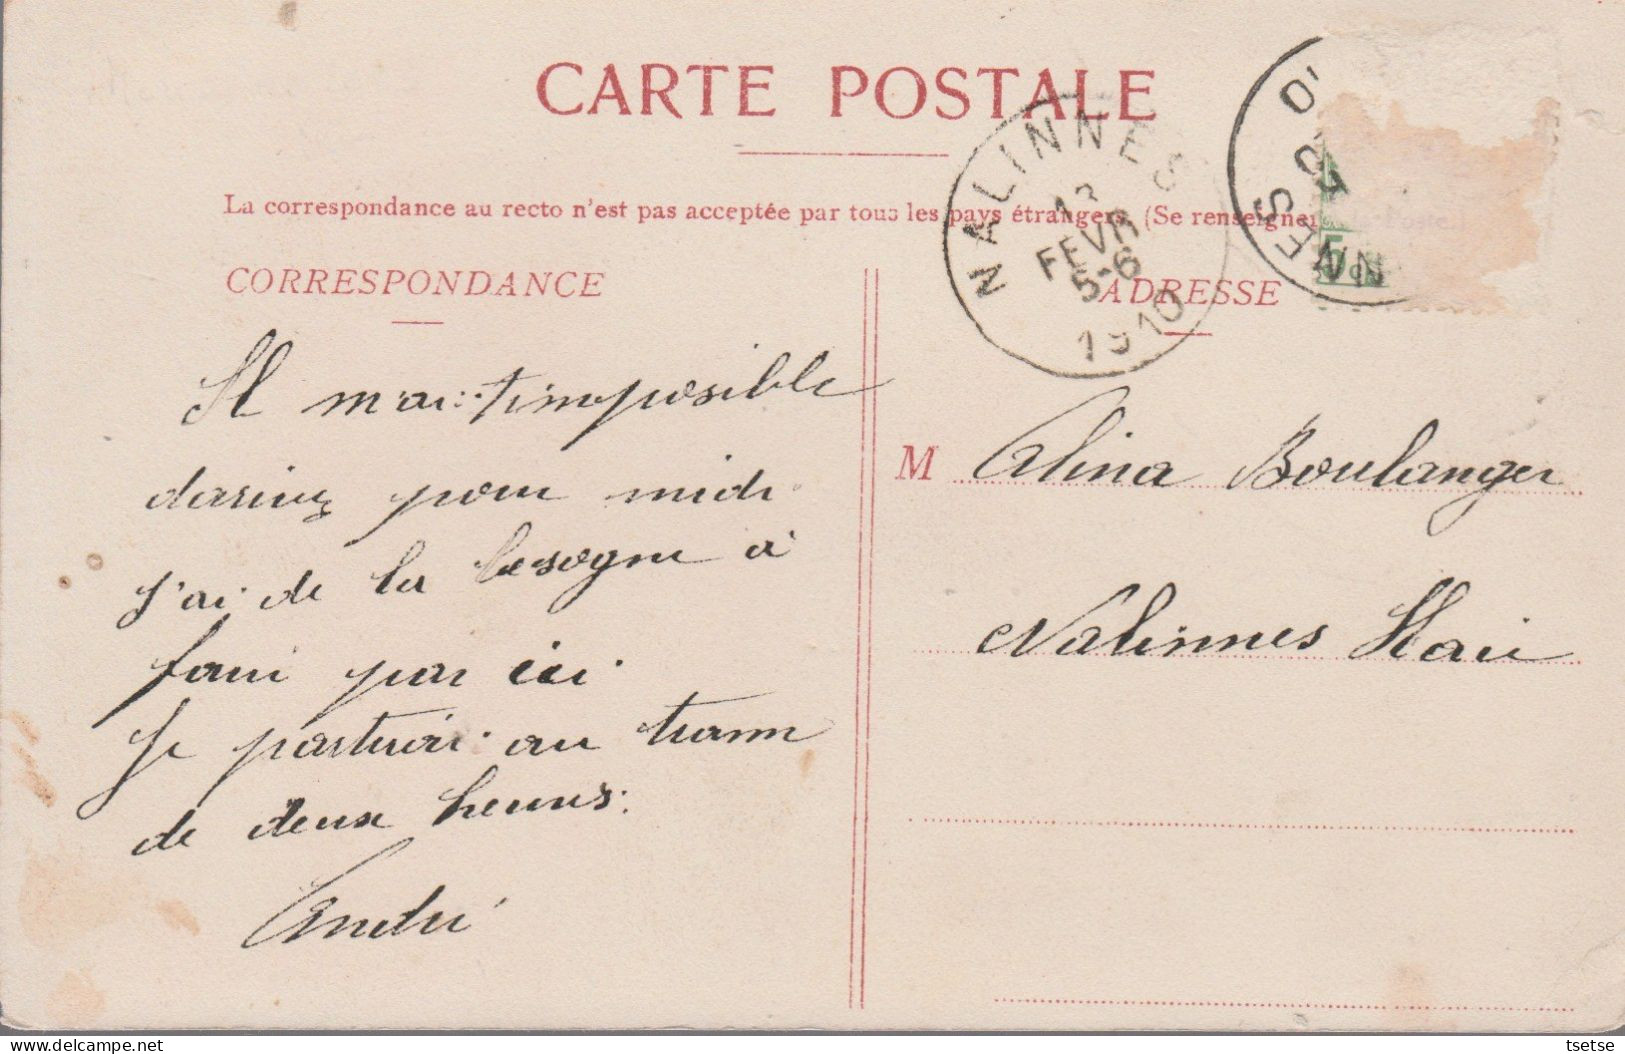 CARTE POSTALE
La correspondance au recto n'est pas acceptée par tous les pays étrangers. (Se renseigner
CORRESPONDANCE
ADRESSE
NALINNES
13
FEVR
5-6
1910
5
Il m'ai:timposible
darivez pour midi
J'ai de la besogne à
faire par ici
Je partirai au tramm
de deux heures.
André
M Alina Boulanger
Nalinnes Haie
tsetse